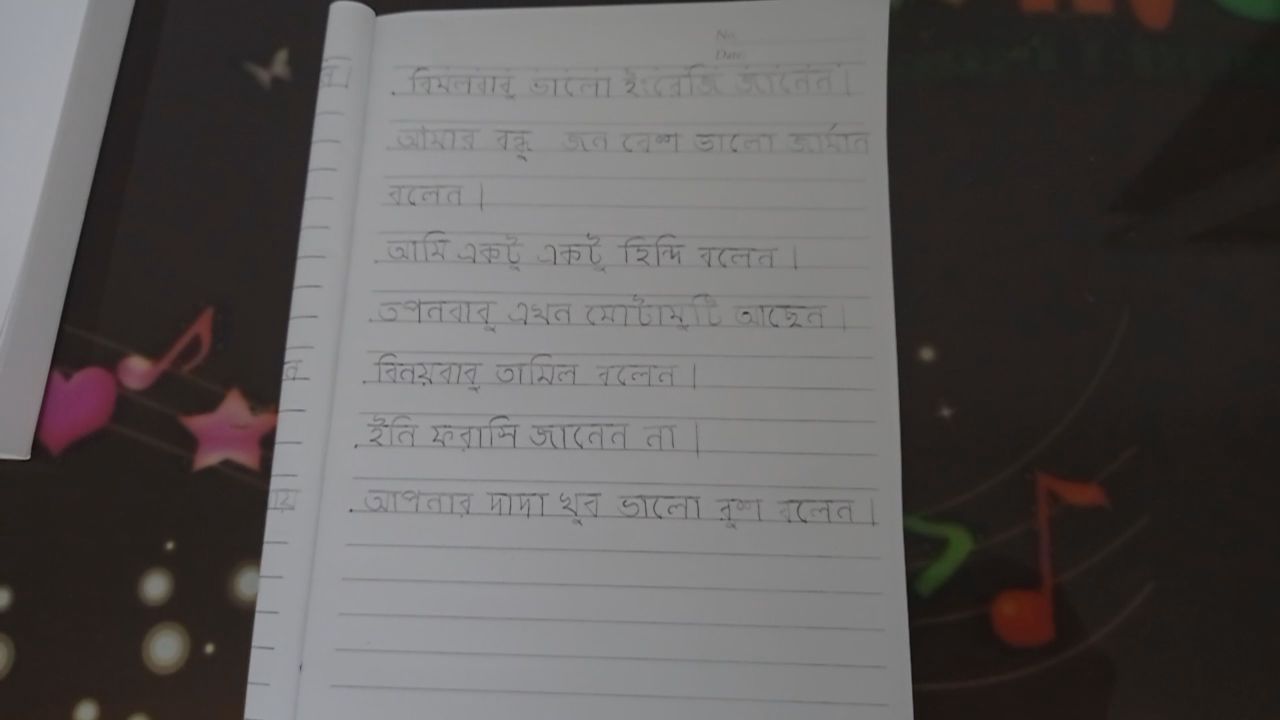 No.
Date:
. বিমলবাবু ভালো ইংরেজি জানেন।
আমার বন্ধু জন বেশ ভালো জার্মান
বলেন।
. আমি একটু একটু হিন্দি বলেন।
. তপনবাবু এখন মোটামুটি আছেন।
. বিনয়বাবু তামিল বলেন।
. ইনি ফরাসি জানেন না।
. আপনার দাদা খুব ভালো রুশ বলেন।